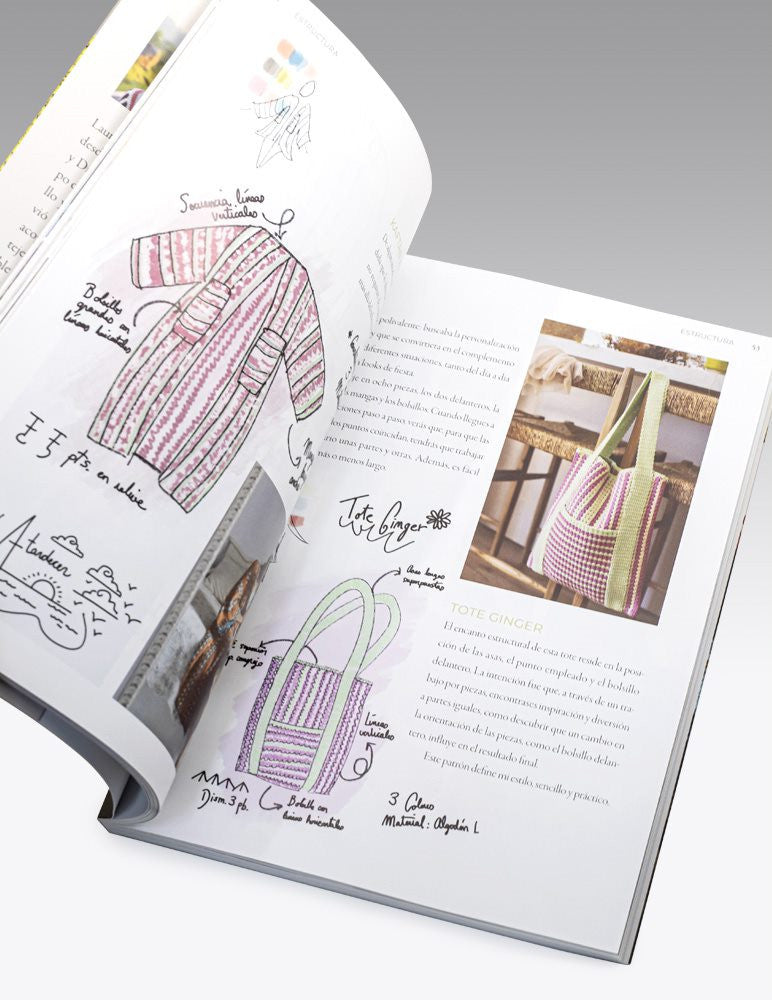 ESTRUCTURA
Secuencia líneas
verticales
Bolsillos
grandes con
líneas horizontales
pts. en relieve
Atardecer
ESTRUCTURA 53
polivalente: buscaba la personalización
y que se convirtiera en el complemento
diferentes situaciones, tanto del día a día
looks de fiesta.
e en ocho piezas, los dos delanteros, la
mangas y los bolsillos. Cuando llegues a
ciones paso a paso, verás que, para que las
os puntos coincidan, tendrás que trabajar
rio unas partes y otras. Además, es fácil
más o menos largo.
Tote Ginger
Asas largas
superpuestas
Líneas
verticales
Dism. 3 pb.
Bolsillo con
líneas horizontales
3 Colores
Material: Algodón L
TOTE GINGER
El encanto estructural de esta tote reside en la posi-
ción de las asas, el punto empleado y el bolsillo
delantero. La intención fue que, a través de un tra-
bajo por piezas, encontrases inspiración y diversión
a partes iguales, como descubrir que un cambio en
la orientación de las piezas, como el bolsillo delan-
tero, influye en el resultado final.
Este patrón define mi estilo, sencillo y práctico.